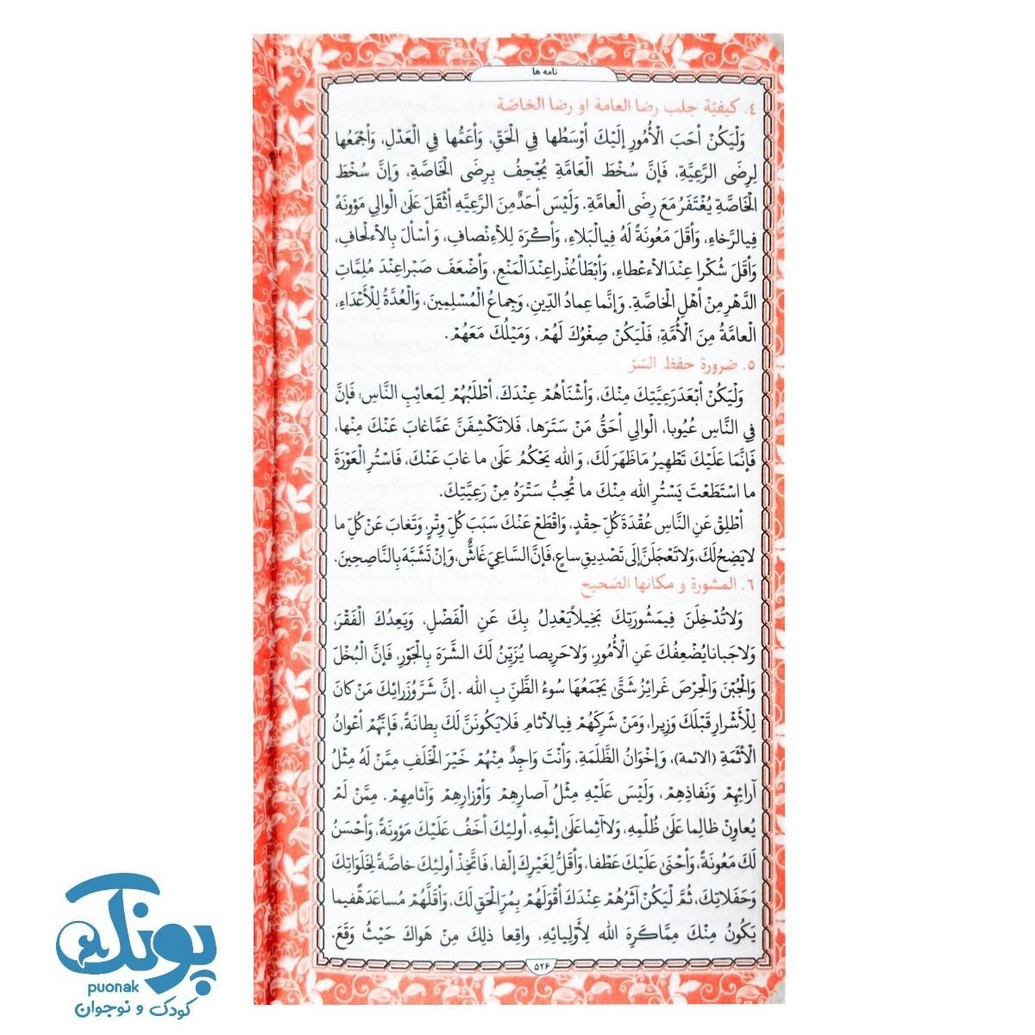 نامه ها
٤. كيفيّة جلب رضا العامة او رضا الخاصّة
وَلْيَكُنْ أحَبَ الْأُمُورِ إلَيْكَ أوْسَطُها فِي الْحَقِّ، وَأعَمُّها فِي الْعَدْلِ، وَأجْمَعُها
لِرِضَى الرَّعِيَّةِ، فَإنَّ سُخْطَ الْعَامَّةِ يُجْحِفُ بِرِضَى الْخَاصَّةِ، وَإنَّ سُخْطَ
الْخَاصَّةِ يُغْتَفَرُ مَعَ رِضَى الْعامَّةِ. وَلَيْسَ أحَدٌ مِنَ الرَّعِيَّهِ أثْقَلَ عَلَى الْوالِي مَؤونَهً
فِيالرَّخاءِ، وَأقَلَ مَعُونَةً لَهُ فِيالْبَلاءِ، وَأكْرَهَ لِلأِنْصافِ، وَ أسْألَ بِالأءلْحافِ،
وَأقَلَ شُكْرا عِنْدَالأءعْطاءِ، وَأبْطَأعُذْراعِنْدَالْمَنْعِ، وَأضْعَفَ صَبْراعِنْدَ مُلِمَّاتِ
الدَّهْرِمِنْ أهْلِ الْخَاصَّةِ. وَإنَّما عِمادُ الدِّينِ، وَجِماعُ الْمُسْلِمِينَ، وَالْعُدَّةُ لِلْأَعْدَاءِ،
الْعامَّةُ مِنَ الْأُمَّةِ؛ فَلْيَكُنْ صِغْوُكَ لَهُمْ، وَمَيْلُكَ مَعَهُمْ.
٥. ضرورة حفظ السّرّ
وَلْيَكُنْ أبْعَدَرَعِيَّتِكَ مِنْكَ، وَأشْنَأهُمْ عِنْدَكَ، أطْلَبُهُمْ لِمَعائِبِ النَّاسِ؛ فَإنَّ
فِي النَّاسِ عُيُوبا، الْوالِي أحَقُّ مَنْ سَتَرَها، فَلاتَكْشِفَنَّ عَمَّاغابَ عَنْكَ مِنْها،
فَإنَّمَا عَلَيْكَ تَطْهِيرُ مَاظَهَرَ لَكَ، وَالله يَحْكُمُ عَلَى ما غابَ عَنْكَ، فَاسْتُرِ الْعَوْرَةَ
ما اسْتَطَعْتَ يَسْتُرِ الله مِنْكَ ما تُحِبُّ سَتْرَهُ مِنْ رَعِيَّتِكَ.
أطْلِقْ عَنِ النَّاسِ عُقْدَةَ كُلِّ حِقْدٍ، وَاقْطَعْ عَنْكَ سَبَبَ كُلِّ وِتْرٍ، وَتَغابَ عَنْ كُلِّ ما
لايَضِحُ لَكَ، وَلاتَعْجَلَنَّ إلَى تَصْدِيقِ ساعٍ، فَإنَّ السَّاعِيَ غَاشٌ، وَإنْ تَشَبَّهَ بِالنَّاصِحِينَ.
٦. المشورة و مكانها الصّحيح
وَلاتُدْخِلَنَ فِيمَشُورَتِكَ بَخِيلاًيَعْدِلُ بِكَ عَنِ الْفَضْلِ، وَيَعِدُكَ الْفَقْرَ،
وَلاجَبانايُضْعِفُكَ عَنِ الْأُمُورِ، وَلاحَرِيصا يُزَيِّنُ لَكَ الشَّرَهَ بِالْجَوْرِ، فَإنَّ الْبُخْلَ
وَالْجُبْنَ وَالْحِرْصَ غَرائِزُ شَتَّى يَجْمَعُهَا سُوءُ الظَّنِّ بِ الله . إنَّ شَرَّ وُزَرائِكَ مَنْ كانَ
لِلْأشْرارِ قَبْلَكَ وَزِيرا، وَمَنْ شَرِكَهُمْ فِيالأثامِ فَلايَكُونَنَّ لَكَ بِطانَةً، فَإنَّهُمْ أعْوانُ
الْأثَمَةِ (الائمة)، وَإخْوَانُ الظَّلَمَةِ، وَأنْتَ وَاجِدٌ مِنْهُمْ خَيْرَ الْخَلَفِ مِمَّنْ لَهُ مِثْلُ
آرائِهِمْ وَنَفاذِهِمْ، وَلَيْسَ عَلَيْهِ مِثْلُ آصارِهِمْ وَأوْزارِهِمْ وَآثامِهِمْ. مِمَّنْ لَمْ
يُعاوِنْ ظالِما عَلَى ظُلْمِهِ، وَلاآثِماعَلَى إثْمِهِ، أولَئِكَ أخَفُ عَلَيْكَ مَؤونَةً، وَأحْسَنُ
لَكَ مَعُونَةً، وَأحْنَى عَلَيْكَ عَطْفا، وَأقَلُ لِغَيْرِكَ إلْفا، فَاتَّخِذْ أولَئِكَ خاصَّةً لِخَلَواتِكَ
وَحَفَلاتِكَ، ثُمَّ لْيَكُنْ آثَرُهُمْ عِنْدَكَ أقْوَلَهُمْ بِمُرّ الْحَقِ لَكَ، وَأقَلَّهُمْ مُساعَدَةًفِيما
يَكُونُ مِنْكَ مِمَّاكَرِهَ الله لِأوْلِيائِهِ، واقِعا ذلِكَ مِنْ هَواكَ حَيْثُ وَقَعَ.
٥٢٦
پونک
puonak
کودک و نوجوان